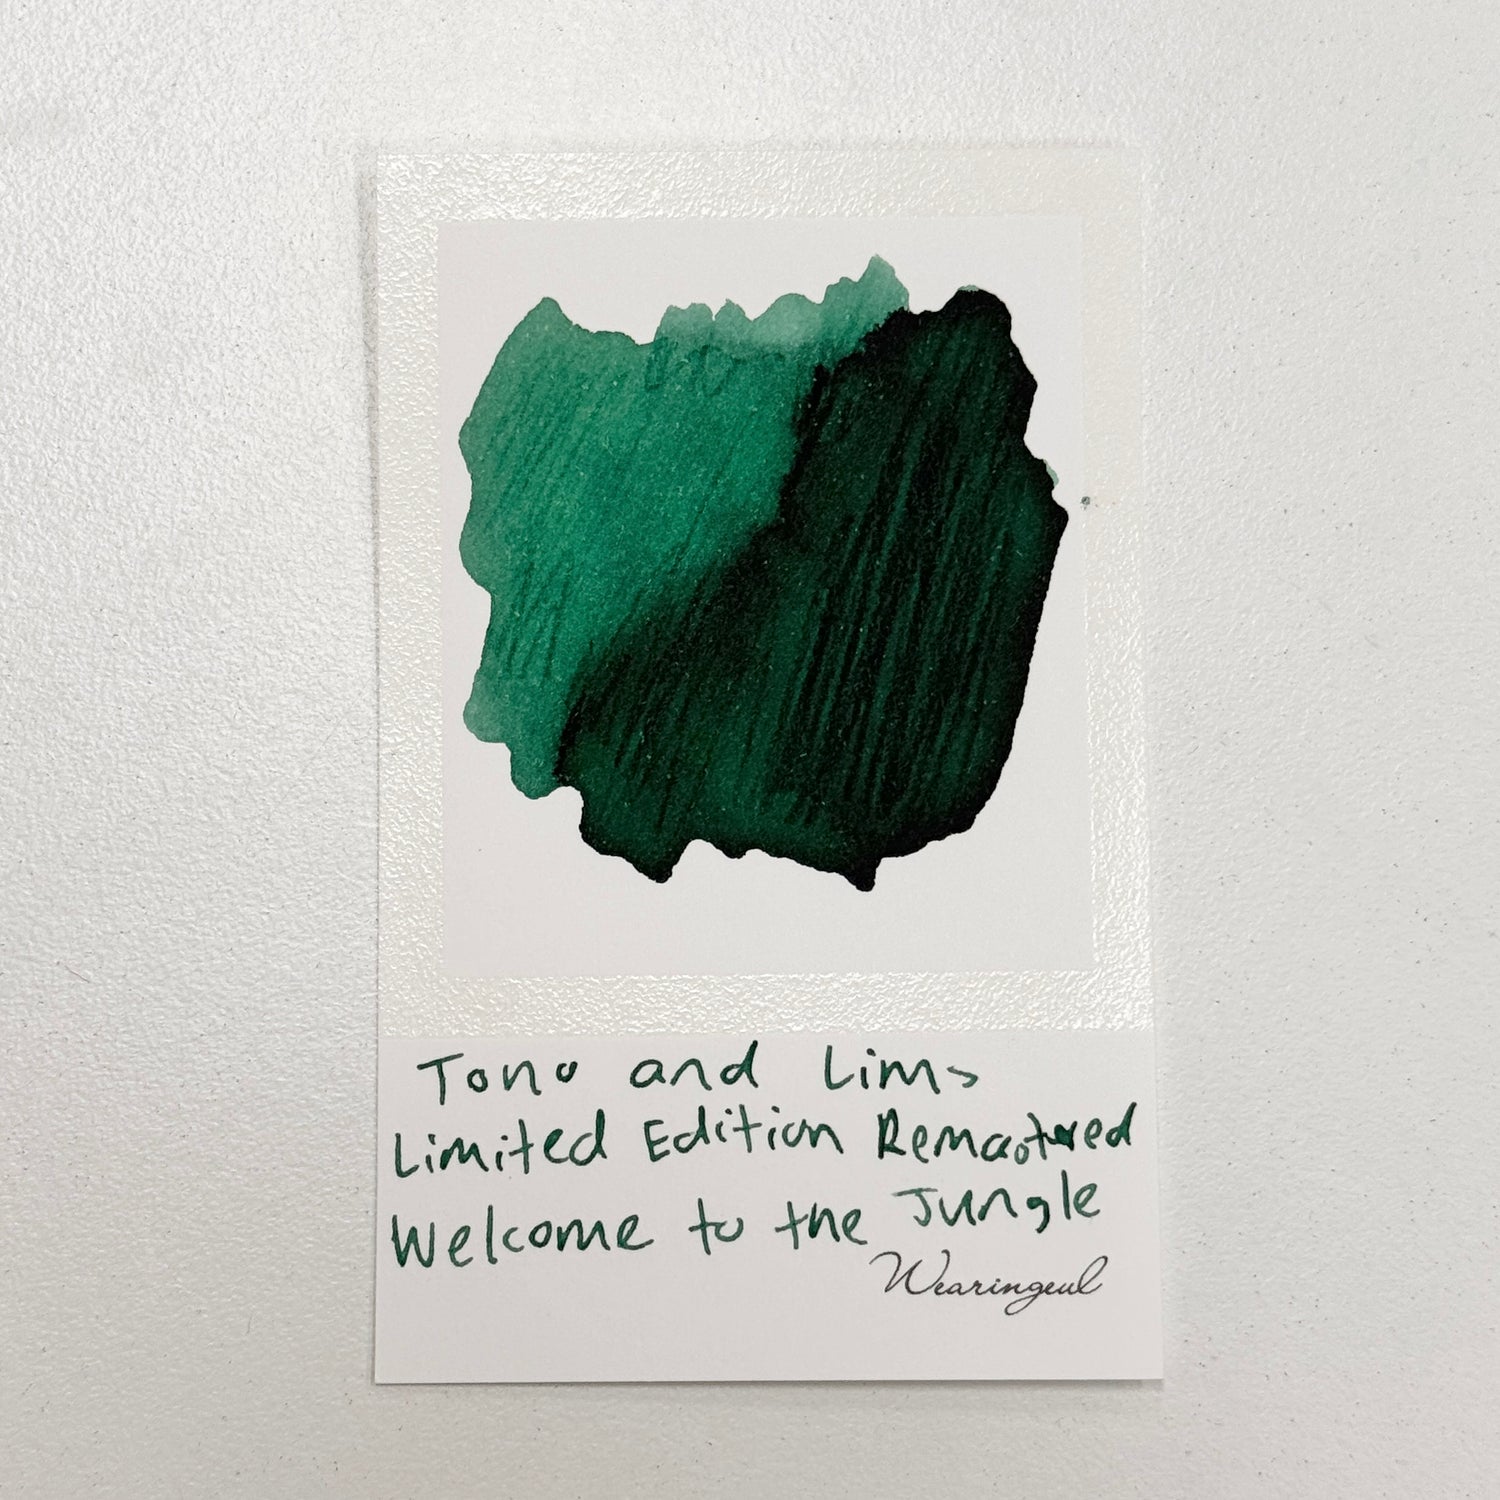 Tono and Lims
Limited Edition Remastered
Welcome to the Jungle
Wearingeul